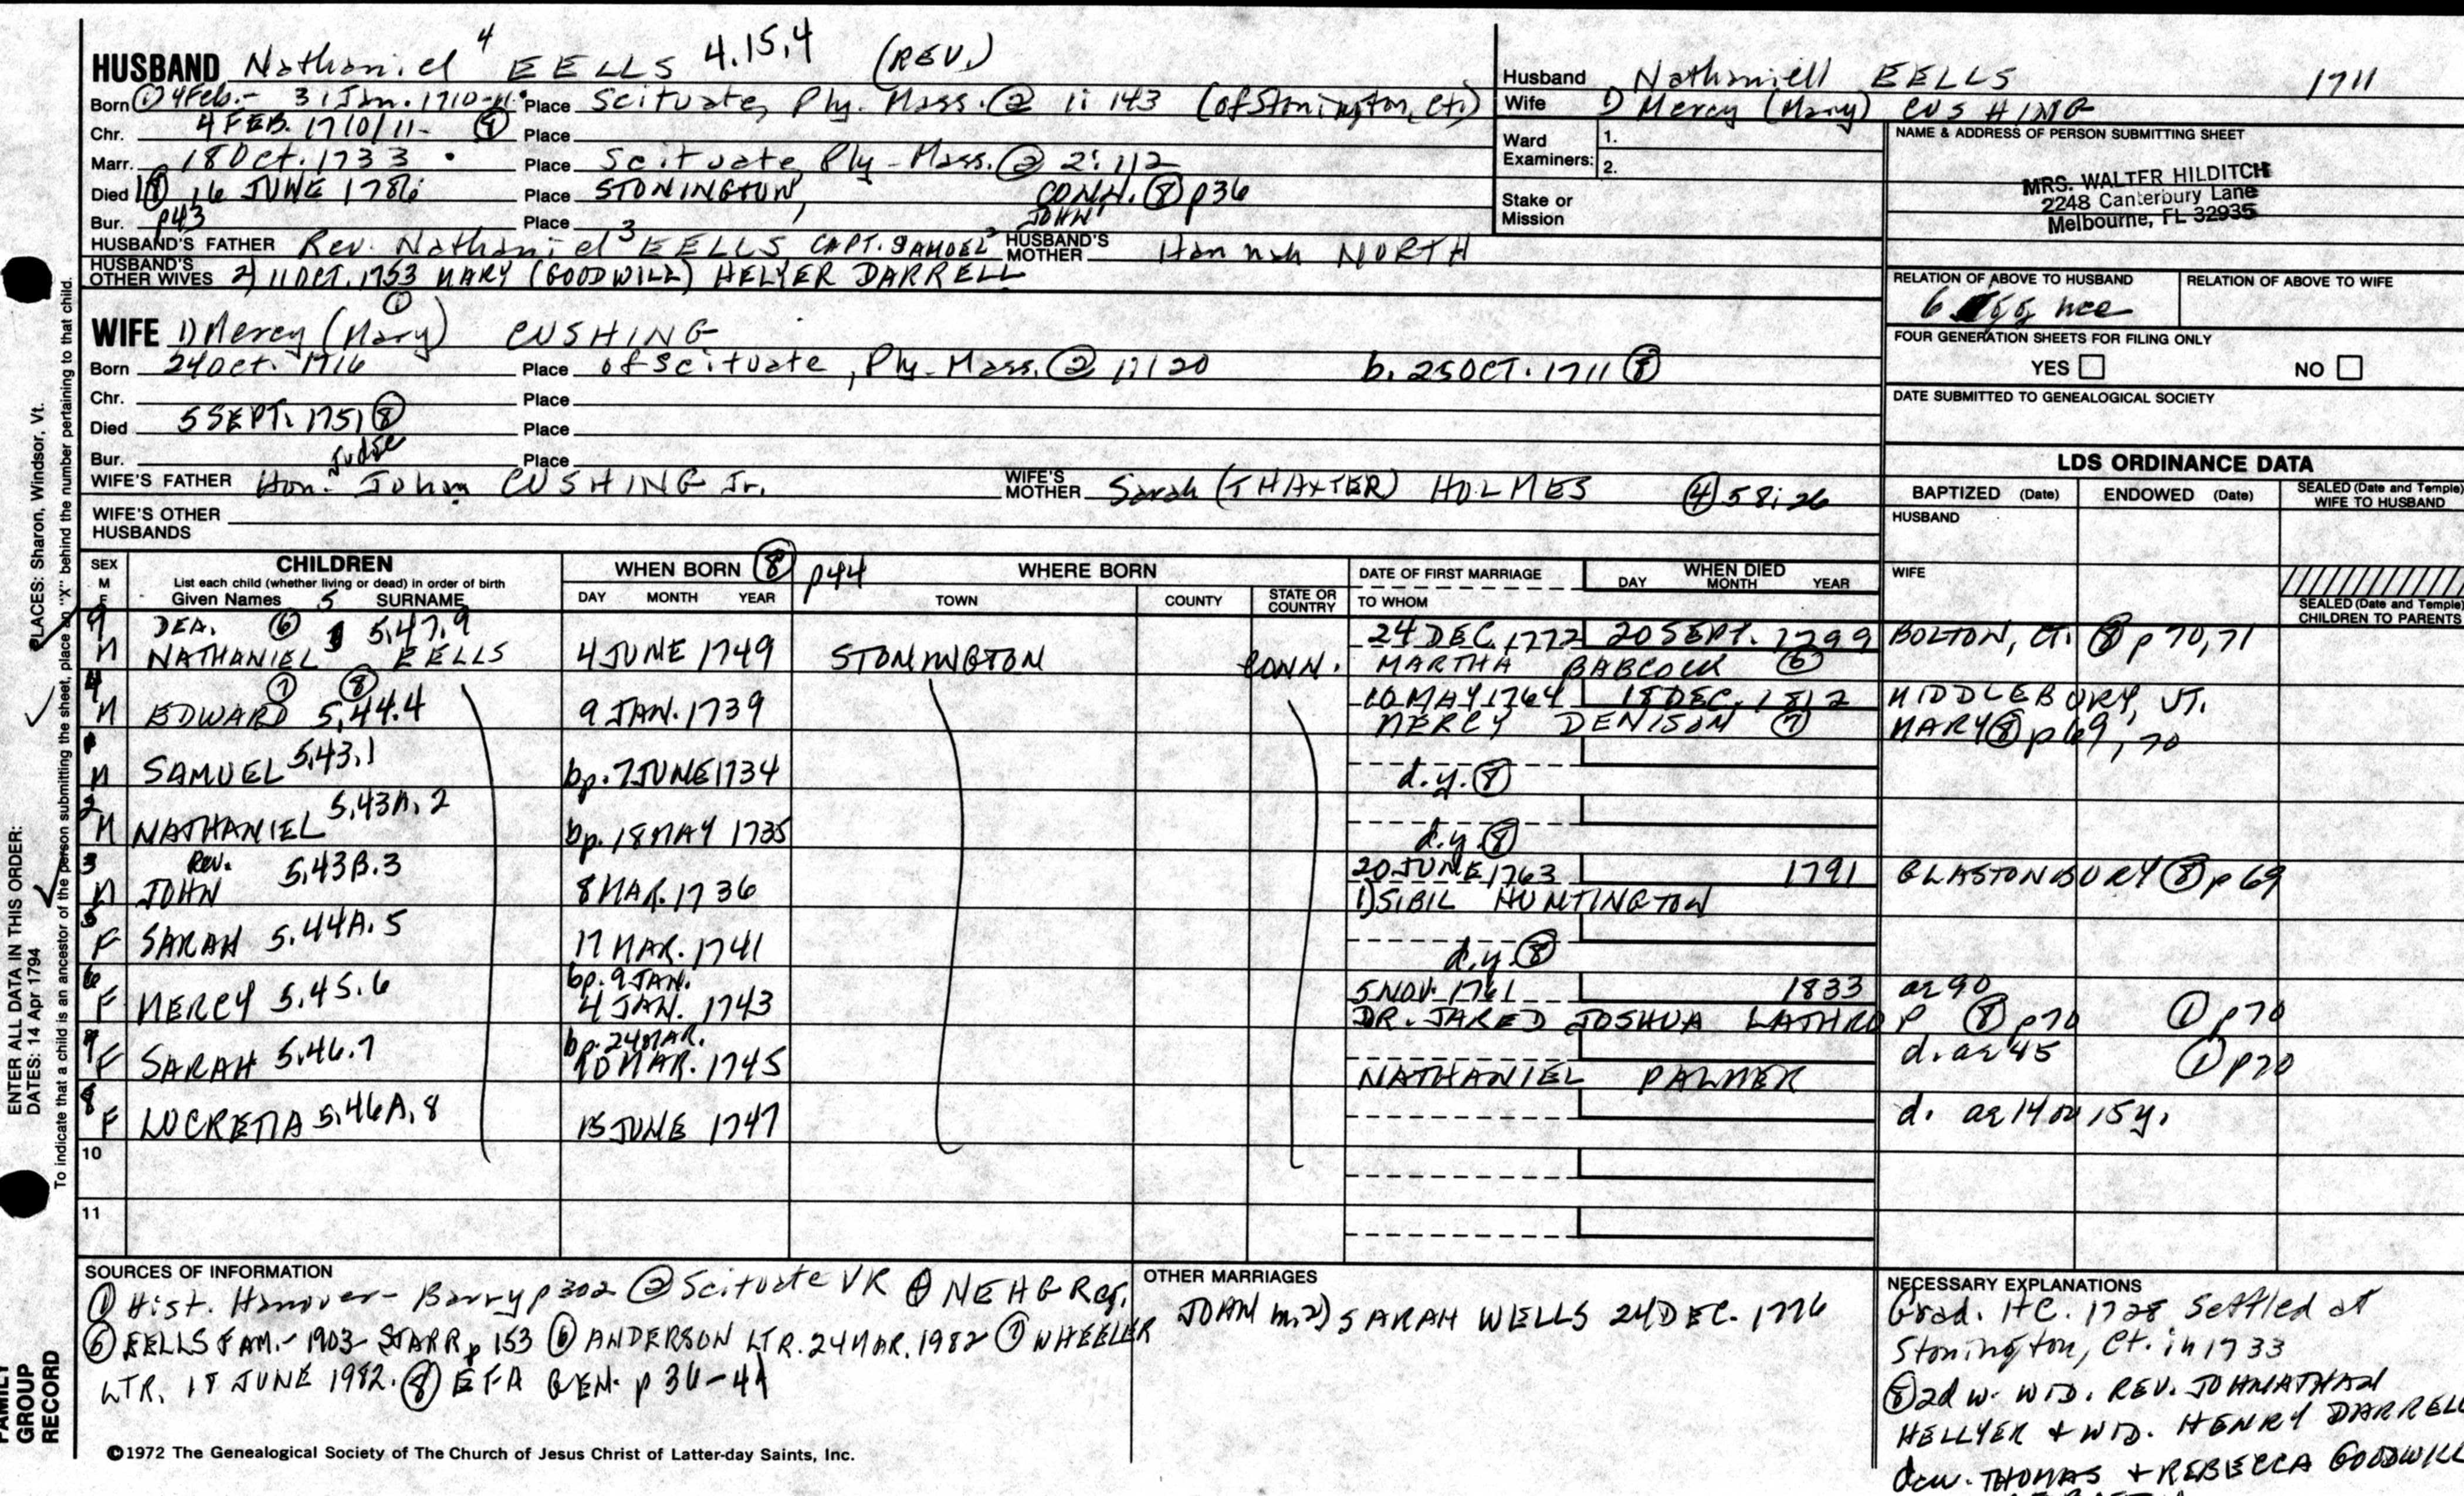 HUSBAND Nathaniel 4 EELLS 4.15.4 (REV.)
Born ① 4 Feb. - 31 Jan. 1710-11. Place Scituate, Ply. Mass. ② 1:143 (of Stonington, Ct.)
Chr. 4 FEB. 1710/11- Place
Marr. 18 Oct. 1733 Place Scituate, Ply - Mass. ② 2:112
Died 16 JUNE 1786 Place STONINGTON, CONN. ⑧ p36
Bur. p43 Place
HUSBAND'S FATHER Rev. Nathaniel 3 EELLS CAPT. SAMUEL 2 JOHN 1 HUSBAND'S MOTHER Hannah NORTH
HUSBAND'S OTHER WIVES 2) 11 OCT. 1753 MARY (GOODWILL) HELYER DARRELL
WIFE 1) Mercy (Mary) ① CUSHING
Born 24 Oct. 1716 Place of Scituate, Ply - Mass. ② 1:120 b. 25 OCT. 1711 ⑧
Chr. Place
Died 5 SEPT. 1751 ⑧ Place
Bur. Place
WIFE'S FATHER Hon. Judge John CUSHING Jr. WIFE'S MOTHER Sarah (THAXTER) HOLMES ④ 58:26
WIFE'S OTHER HUSBANDS
Husband Nathaniell EELLS 1711
Wife 1) Mercy (Mary) CUSHING
Ward Examiners: 1.
2.
Stake or Mission
NAME & ADDRESS OF PERSON SUBMITTING SHEET
MRS. WALTER HILDITCH
2248 Canterbury Lane
Melbourne, FL 32935
RELATION OF ABOVE TO HUSBAND RELATION OF ABOVE TO WIFE
6 gg nce
FOUR GENERATION SHEETS FOR FILING ONLY
YES NO
DATE SUBMITTED TO GENEALOGICAL SOCIETY
LDS ORDINANCE DATA
BAPTIZED (Date) ENDOWED (Date) SEALED (Date and Temple) WIFE TO HUSBAND
HUSBAND
WIFE
SEALED (Date and Temple) CHILDREN TO PARENTS
SEX M F CHILDREN WHEN BORN ⑧ p44 WHERE BORN DATE OF FIRST MARRIAGE WHEN DIED
List each child (whether living or dead) in order of birth
Given Names 5 SURNAME DAY MONTH YEAR TOWN COUNTY STATE OR COUNTRY TO WHOM DAY MONTH YEAR
9 DEA. ⑥ 5.47.9 24 DEC 1772 20 SEPT. 1799 BOLTON, CT. ⑧ p 70,71
M NATHANIEL EELLS 4 JUNE 1749 STONINGTON CONN. MARTHA BABCOCK ⑥
4 ⑦ ⑧ 10 MAY 1764 18 DEC. 1812 MIDDLEBURY, VT.
M EDWARD 5.44.4 9 JAN. 1739 MERCY DENISON ⑦ MARY ⑧ p 69, 70
1
M SAMUEL 5.43.1 bp. 7 JUNE 1734 d.y. ⑧
2
M NATHANIEL 5.43A.2 bp. 18 MAY 1735 d.y. ⑧
3 Rev. 20 JUNE 1763 1791 GLASTONBURY ⑧ p 69
M JOHN 5.43B.3 8 MAR. 1736 1) SIBIL HUNTINGTON
5
F SARAH 5.44A.5 17 MAR. 1741 d.y. ⑧
6 bp. 9 JAN. 5 NOV. 1761 1833 ae 90
F MERCY 5.45.6 4 JAN. 1743 DR. JARED JOSHUA LATHROP ⑧ p70 ① p70
7 bp. 24 MAR. d. ae 45 ① p70
F SARAH 5.46.7 10 MAR. 1745 NATHANIEL PALMER
8
F LUCRETIA 5.46A.8 15 JUNE 1747 d. ae 14 or 15 y.
10
11
SOURCES OF INFORMATION
① Hist. Hanover - Barry p302 ② Scituate VR ④ NEHG Reg.
EELLS FAM. - 1903 - STARR p 153 ⑥ ANDERSON LTR. 24 MAR. 1982 ⑦ WHEELER
LTR. 18 JUNE 1982. ⑧ EFA GEN. p 36-44
OTHER MARRIAGES
JOHN m. 2) SARAH WELLS 24 DEC. 1776
NECESSARY EXPLANATIONS
Grad. HC. 1728 Settled at
Stonington, Ct. in 1733
⑧ 2d w. WID. REV. JOHNATHAN
HELLYER + WID. HENRY DARRELL
dau. THOMAS + REBECCA GOODWILL
©1972 The Genealogical Society of The Church of Jesus Christ of Latter-day Saints, Inc.
FAMILY GROUP RECORD
ENTER ALL DATA IN THIS ORDER:
DATES: 14 Apr 1794 PLACES: Sharon, Windsor, Vt.
To indicate that a child is an ancestor of the person submitting the sheet, place an "X" behind the number pertaining to that child.